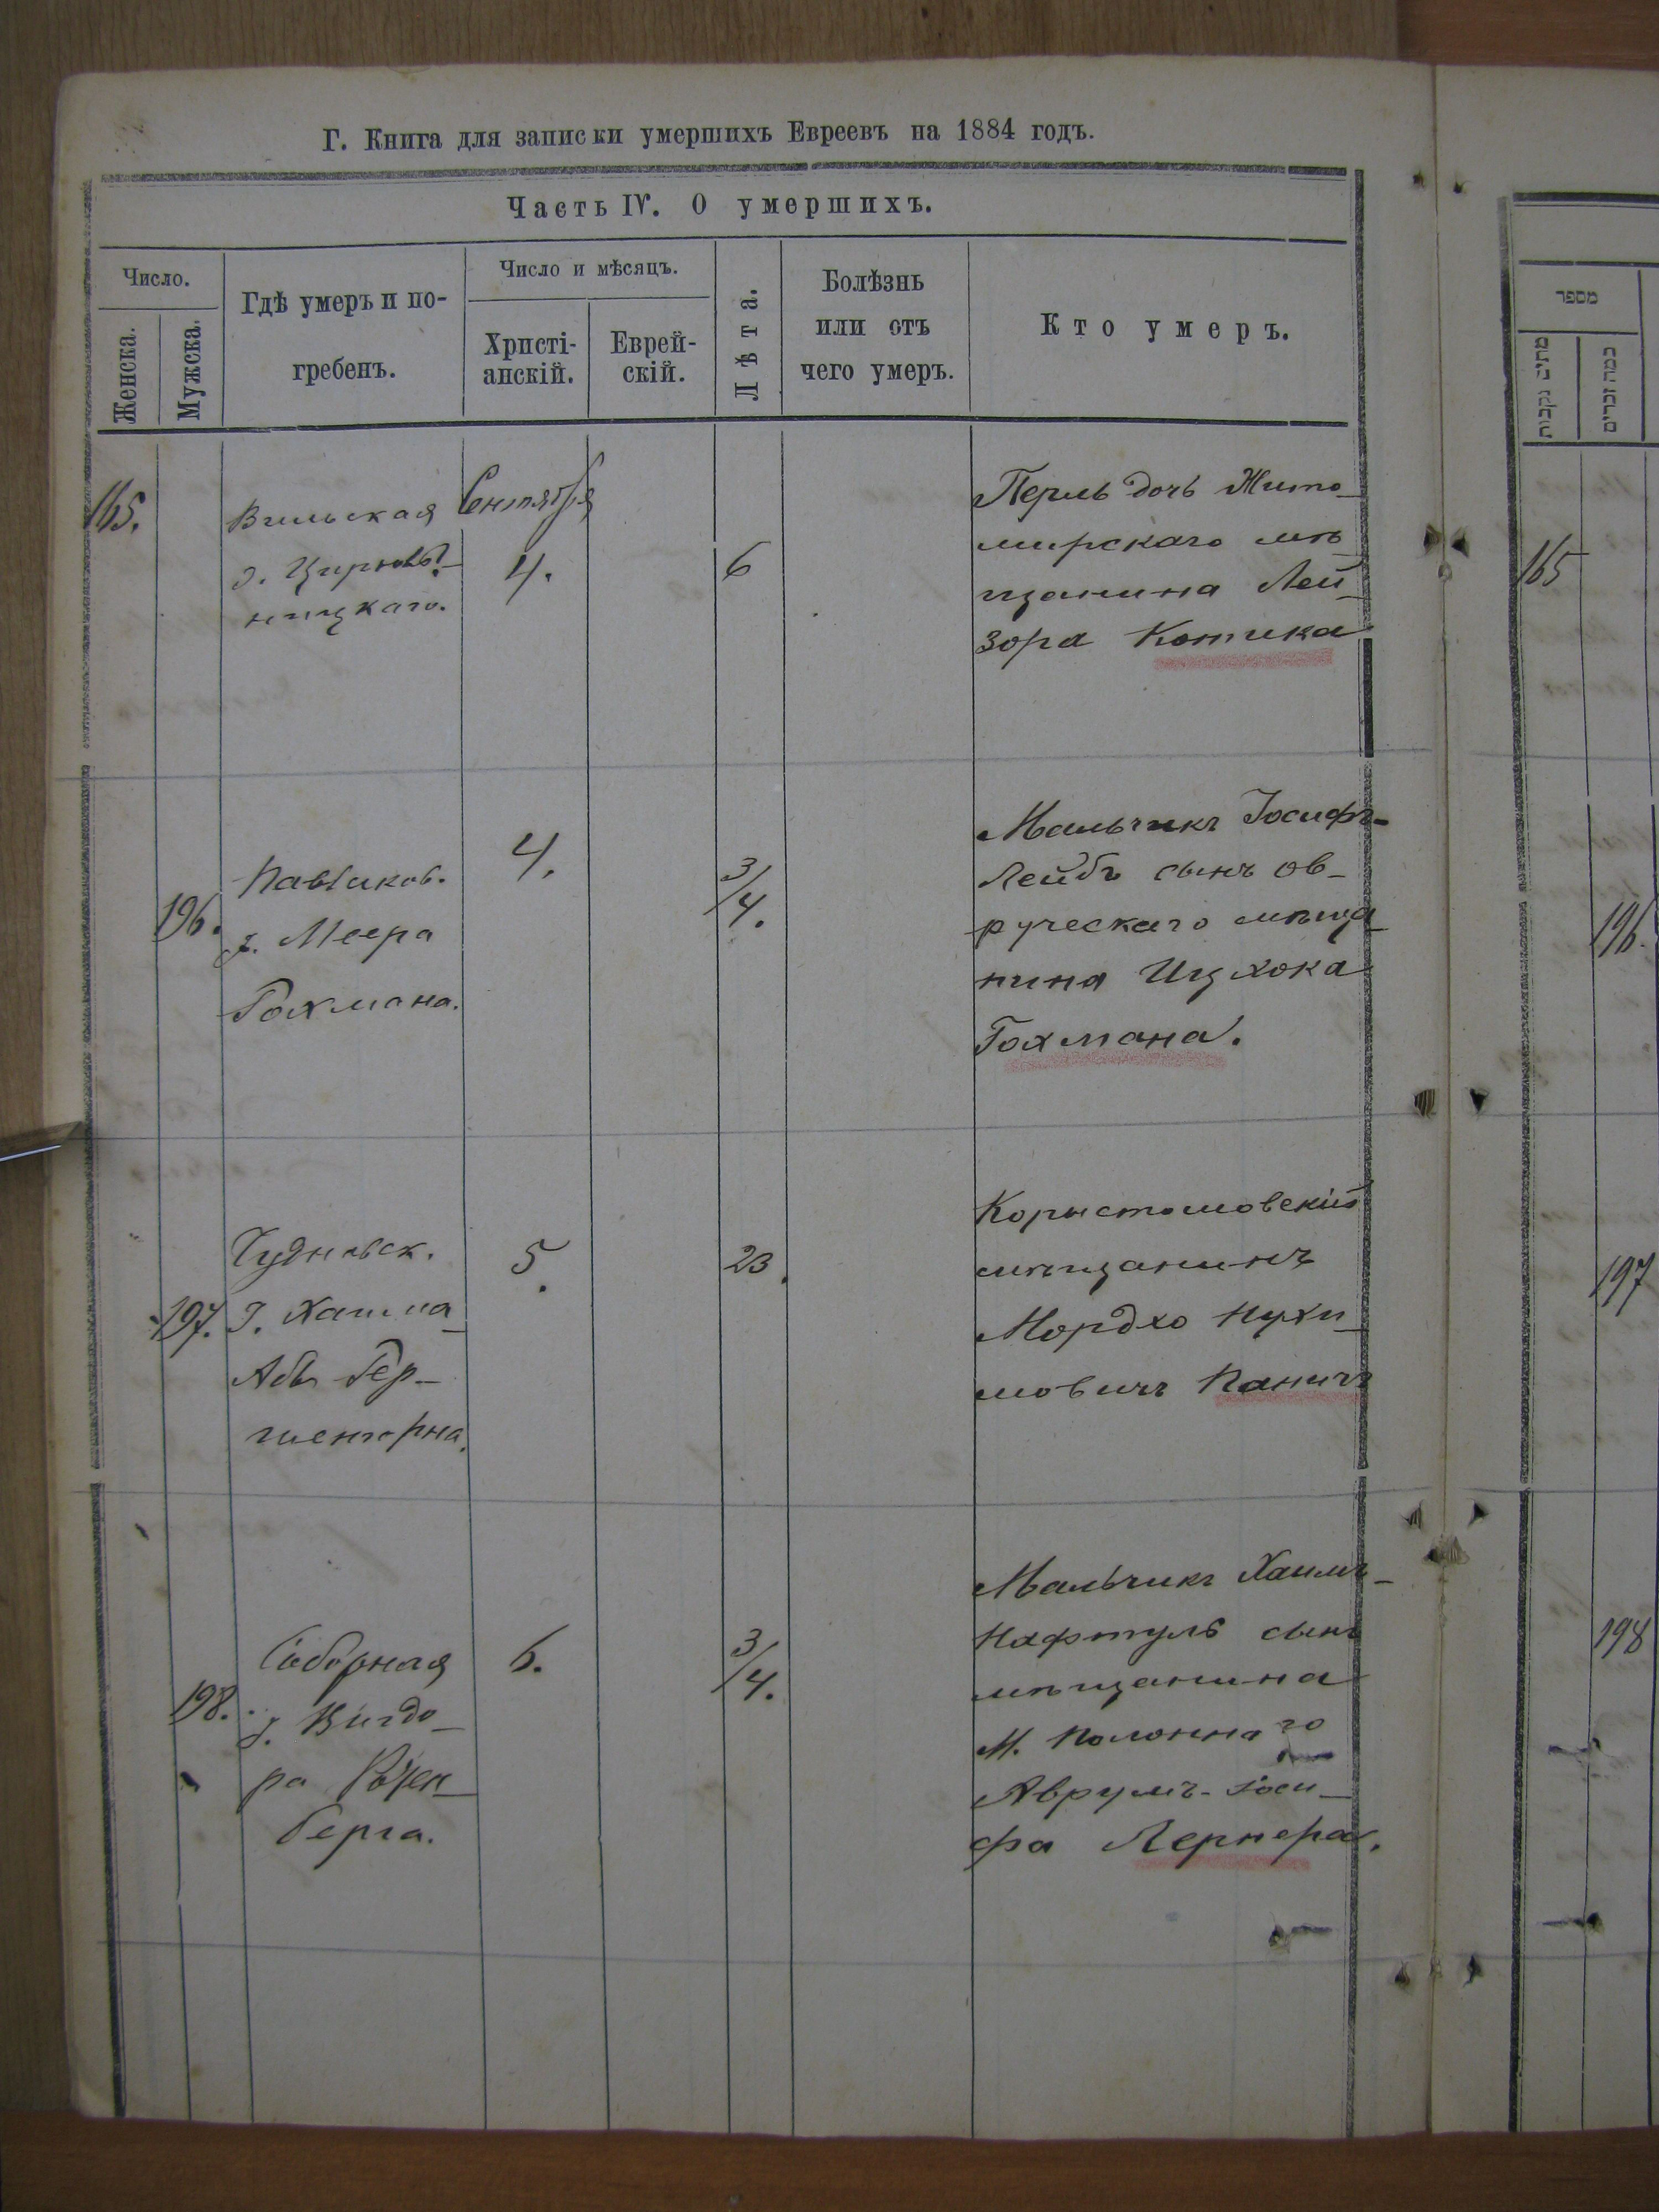 Г. Книга для записки умершихъ Евреевъ на 1884 годъ.
Часть IV. О умершихъ.
Число.
Женска.
Мужска.
Гдѣ умеръ и по-
гребенъ.
Число и мѣсяцъ.
Христі-
анскій.
Еврей-
скій.
Лѣта.
Болѣзнь
или отъ
чего умеръ.
Кто умеръ.
165.
Вильская
д.
ницкаго.
Сентября
4.
6
Перль дочь Жито-
мирскаго мѣ
щанина Лей-
зора Котика
196.
Павликов.
д. Меера
Гохмана.
4.
3/4.
Мальчикъ Іосифъ-
Лейбъ сынъ ов-
ручскаго мѣща-
нина Ицхока
Гохмана.
197.
Чудновск.
д. Хаима-
Абы Гер-
шенгорна.
5.
23.
Коростышовскій
мѣщанинъ
Мордхо Нухи-
мовичъ Паничъ
198.
Соборная
д. Вигдо-
ра Розен-
берга.
6.
3/4.
Мальчикъ Хаимъ-
Нафтуль сынъ
мѣщанина
м. Полоннаго
Аврумъ-Іоси-
фа Лернера.
מספר
165
196.
197
198